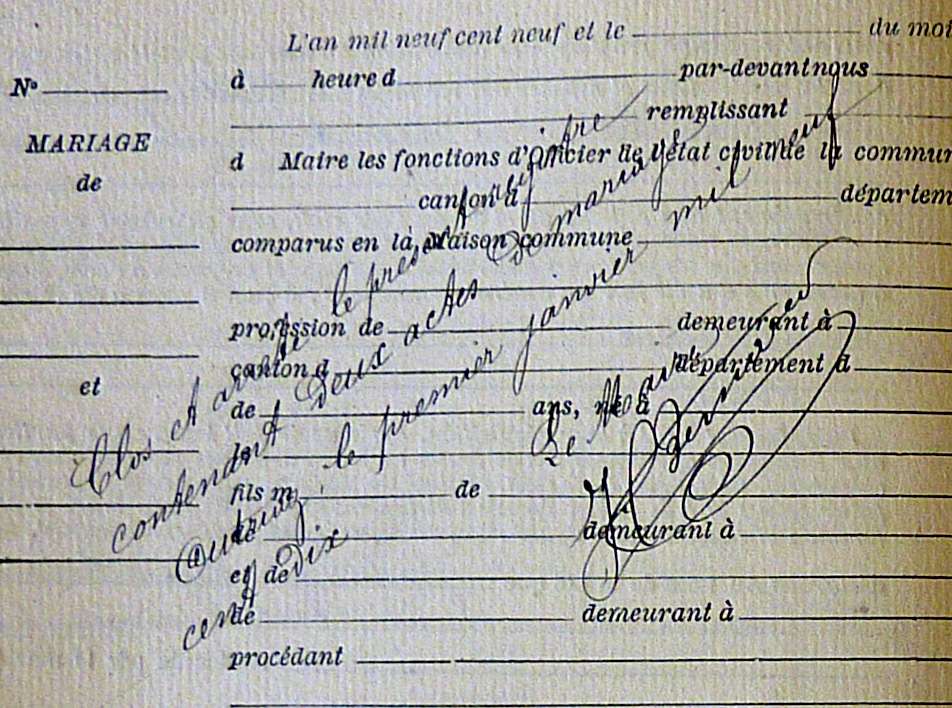 L'an mil neuf cent neuf et le du moi
No
à heure d par-devant nous
remplissant
MARIAGE
d Maire les fonctions d'Officier de l'état civil de la commun
de
canton d départem
comparus en la Maison commune
profession de demeurant à
canton d département d
et
de ans, né à
le
fils m de
de demeurant à
et de
de demeurant à
procédant
Clos et arrêté le présent registre
contenant deux actes de mariage
le premier janvier mil neuf
cent dix
Le Maire